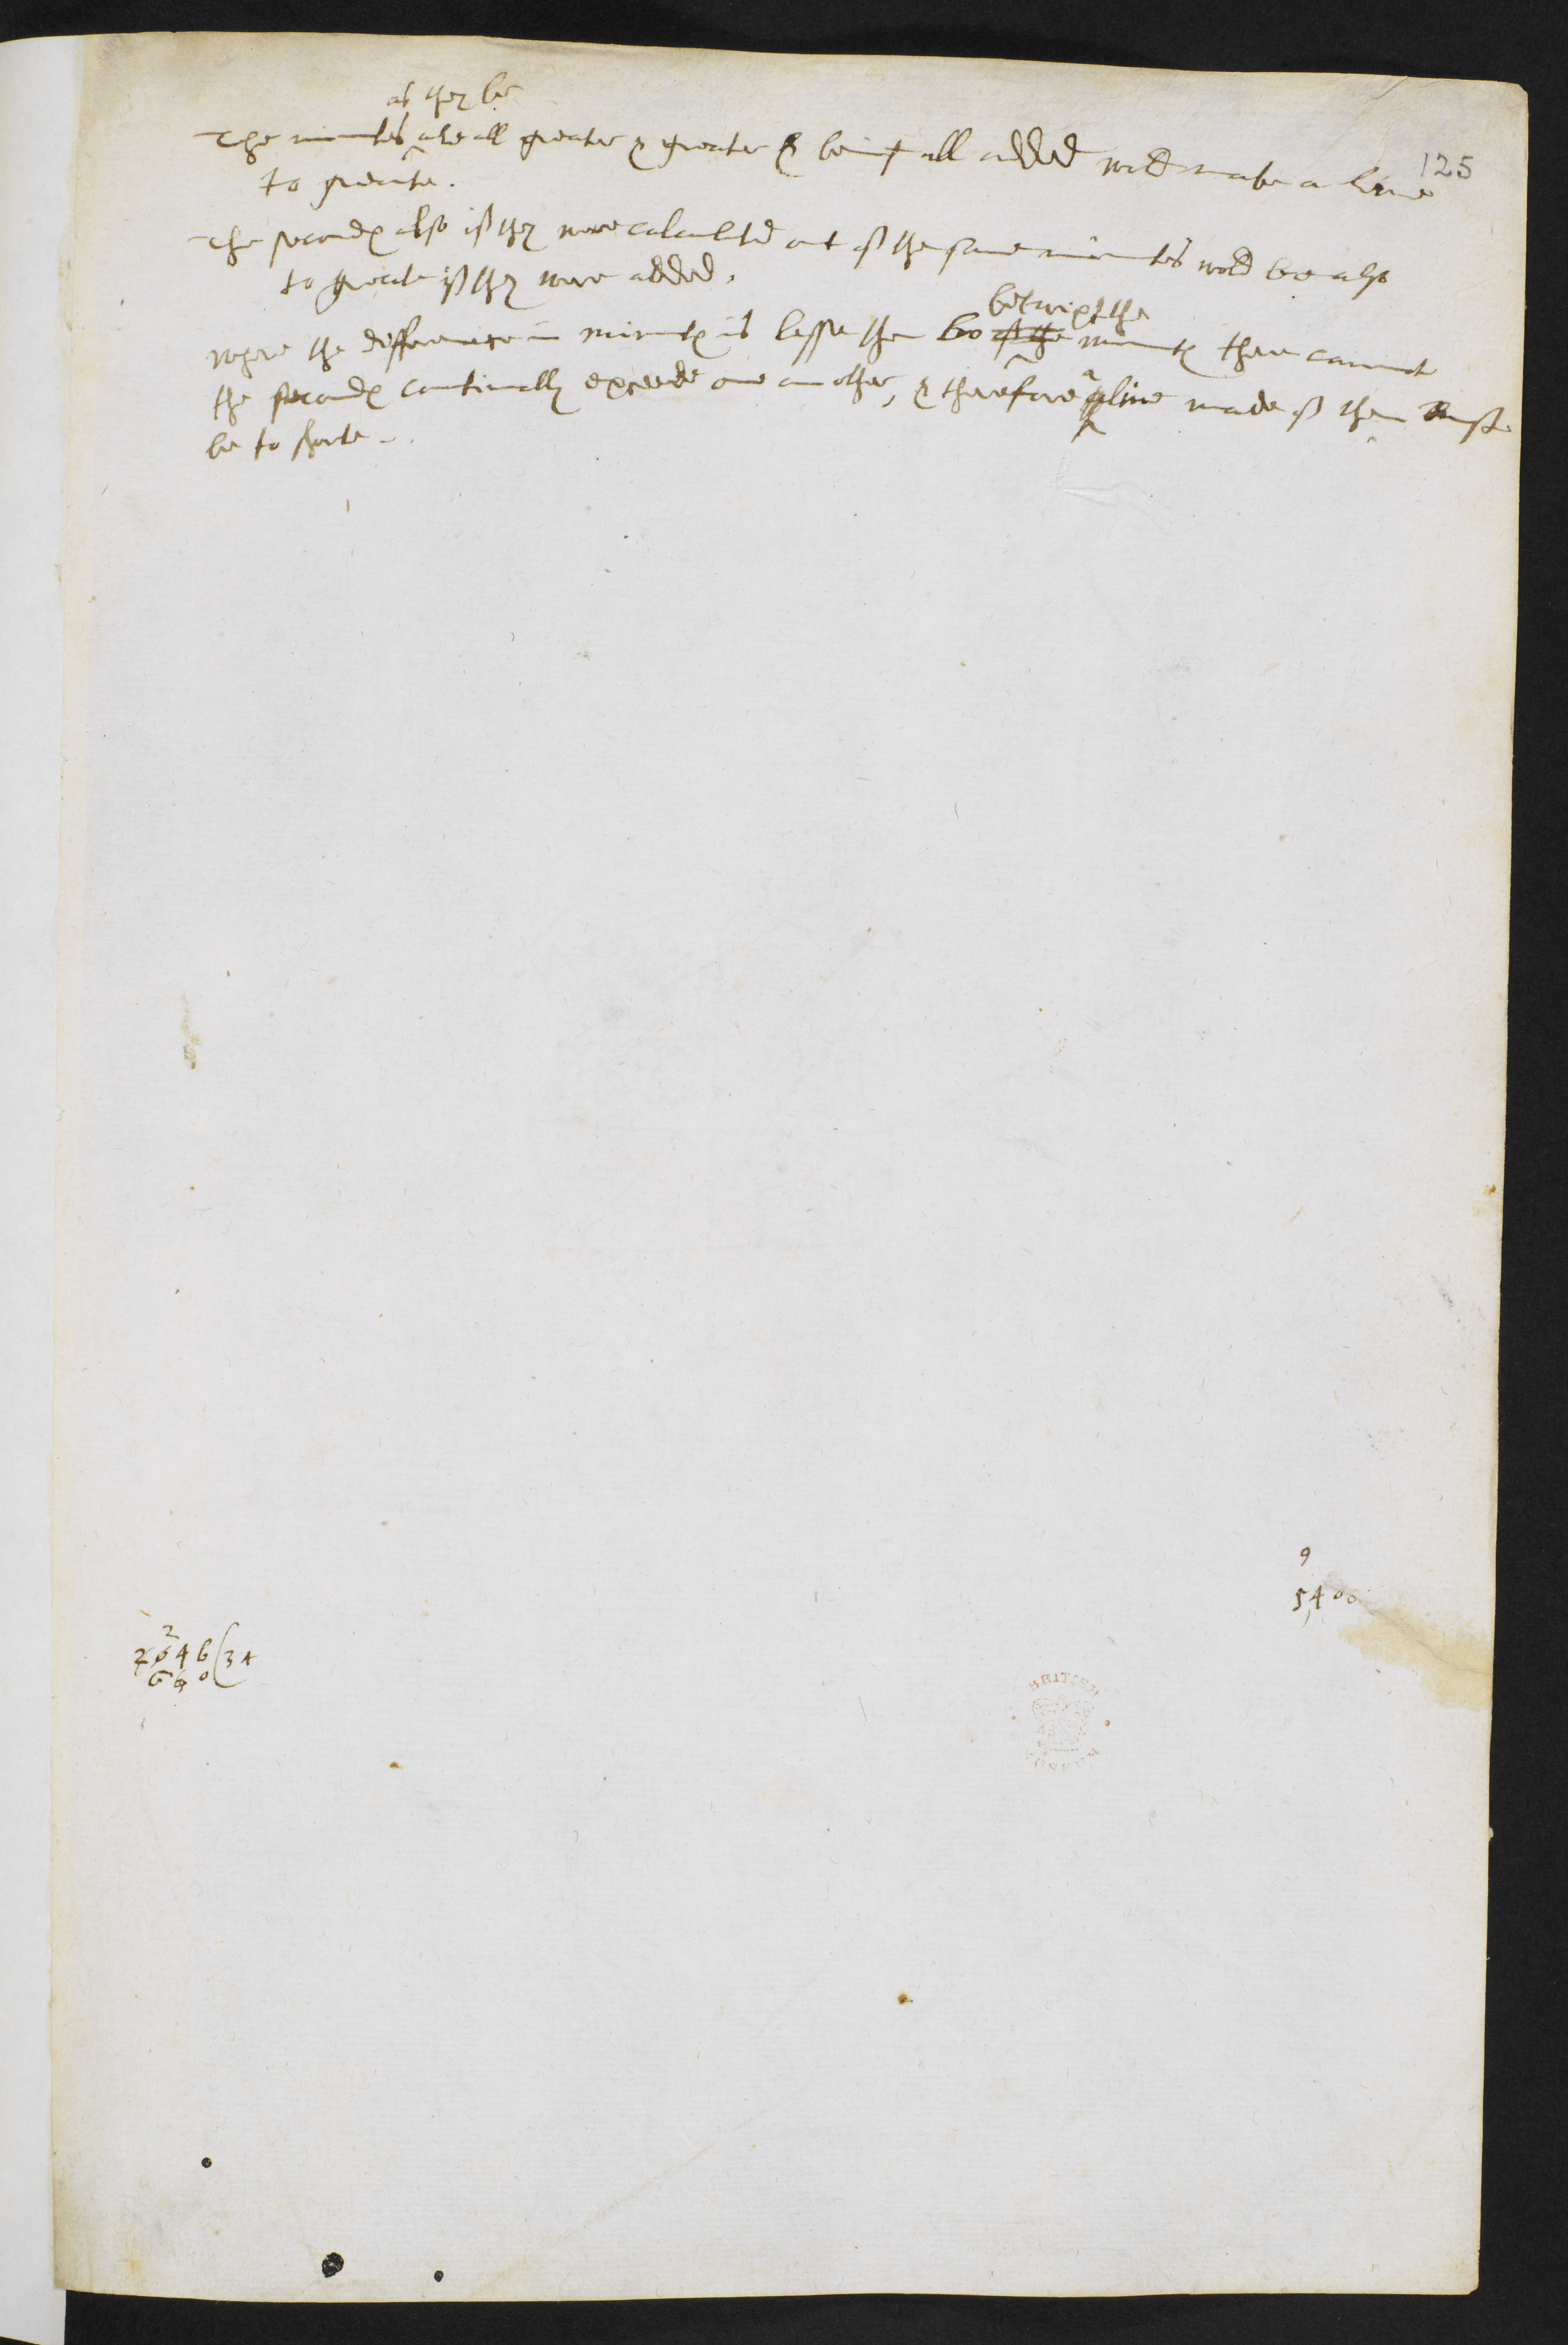 125
as they be
The minutes are all greater & greater & being all added wold make a line
to greate.
The secondes also if they were calculated out of the same minutes wold be also
to greate if they were added.
betwixt the
where the difference in minutes is lesse then 60 of the minutes there cannot
the secondes continually exceede one an other, & therefore a line made of them must
be to shorte.
9
5400
2
2046(34
660
BRITISH
MUSEUM